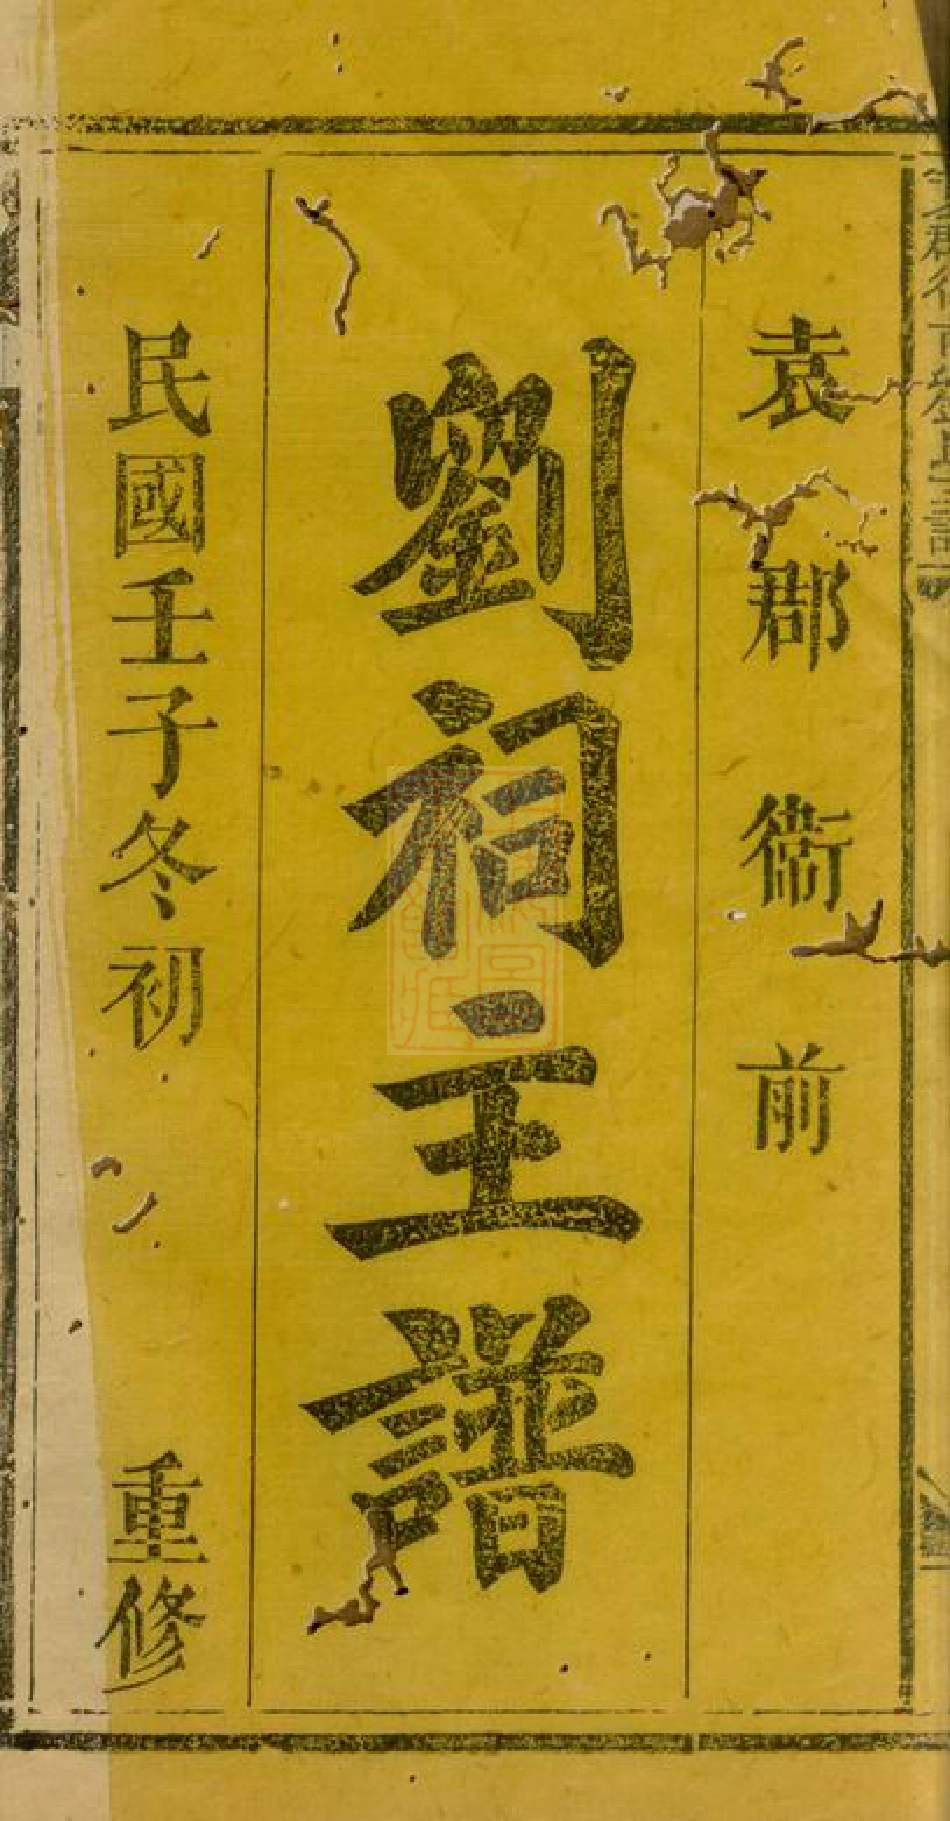 袁郡衞前
劉祠主譜
民國壬子冬初重修